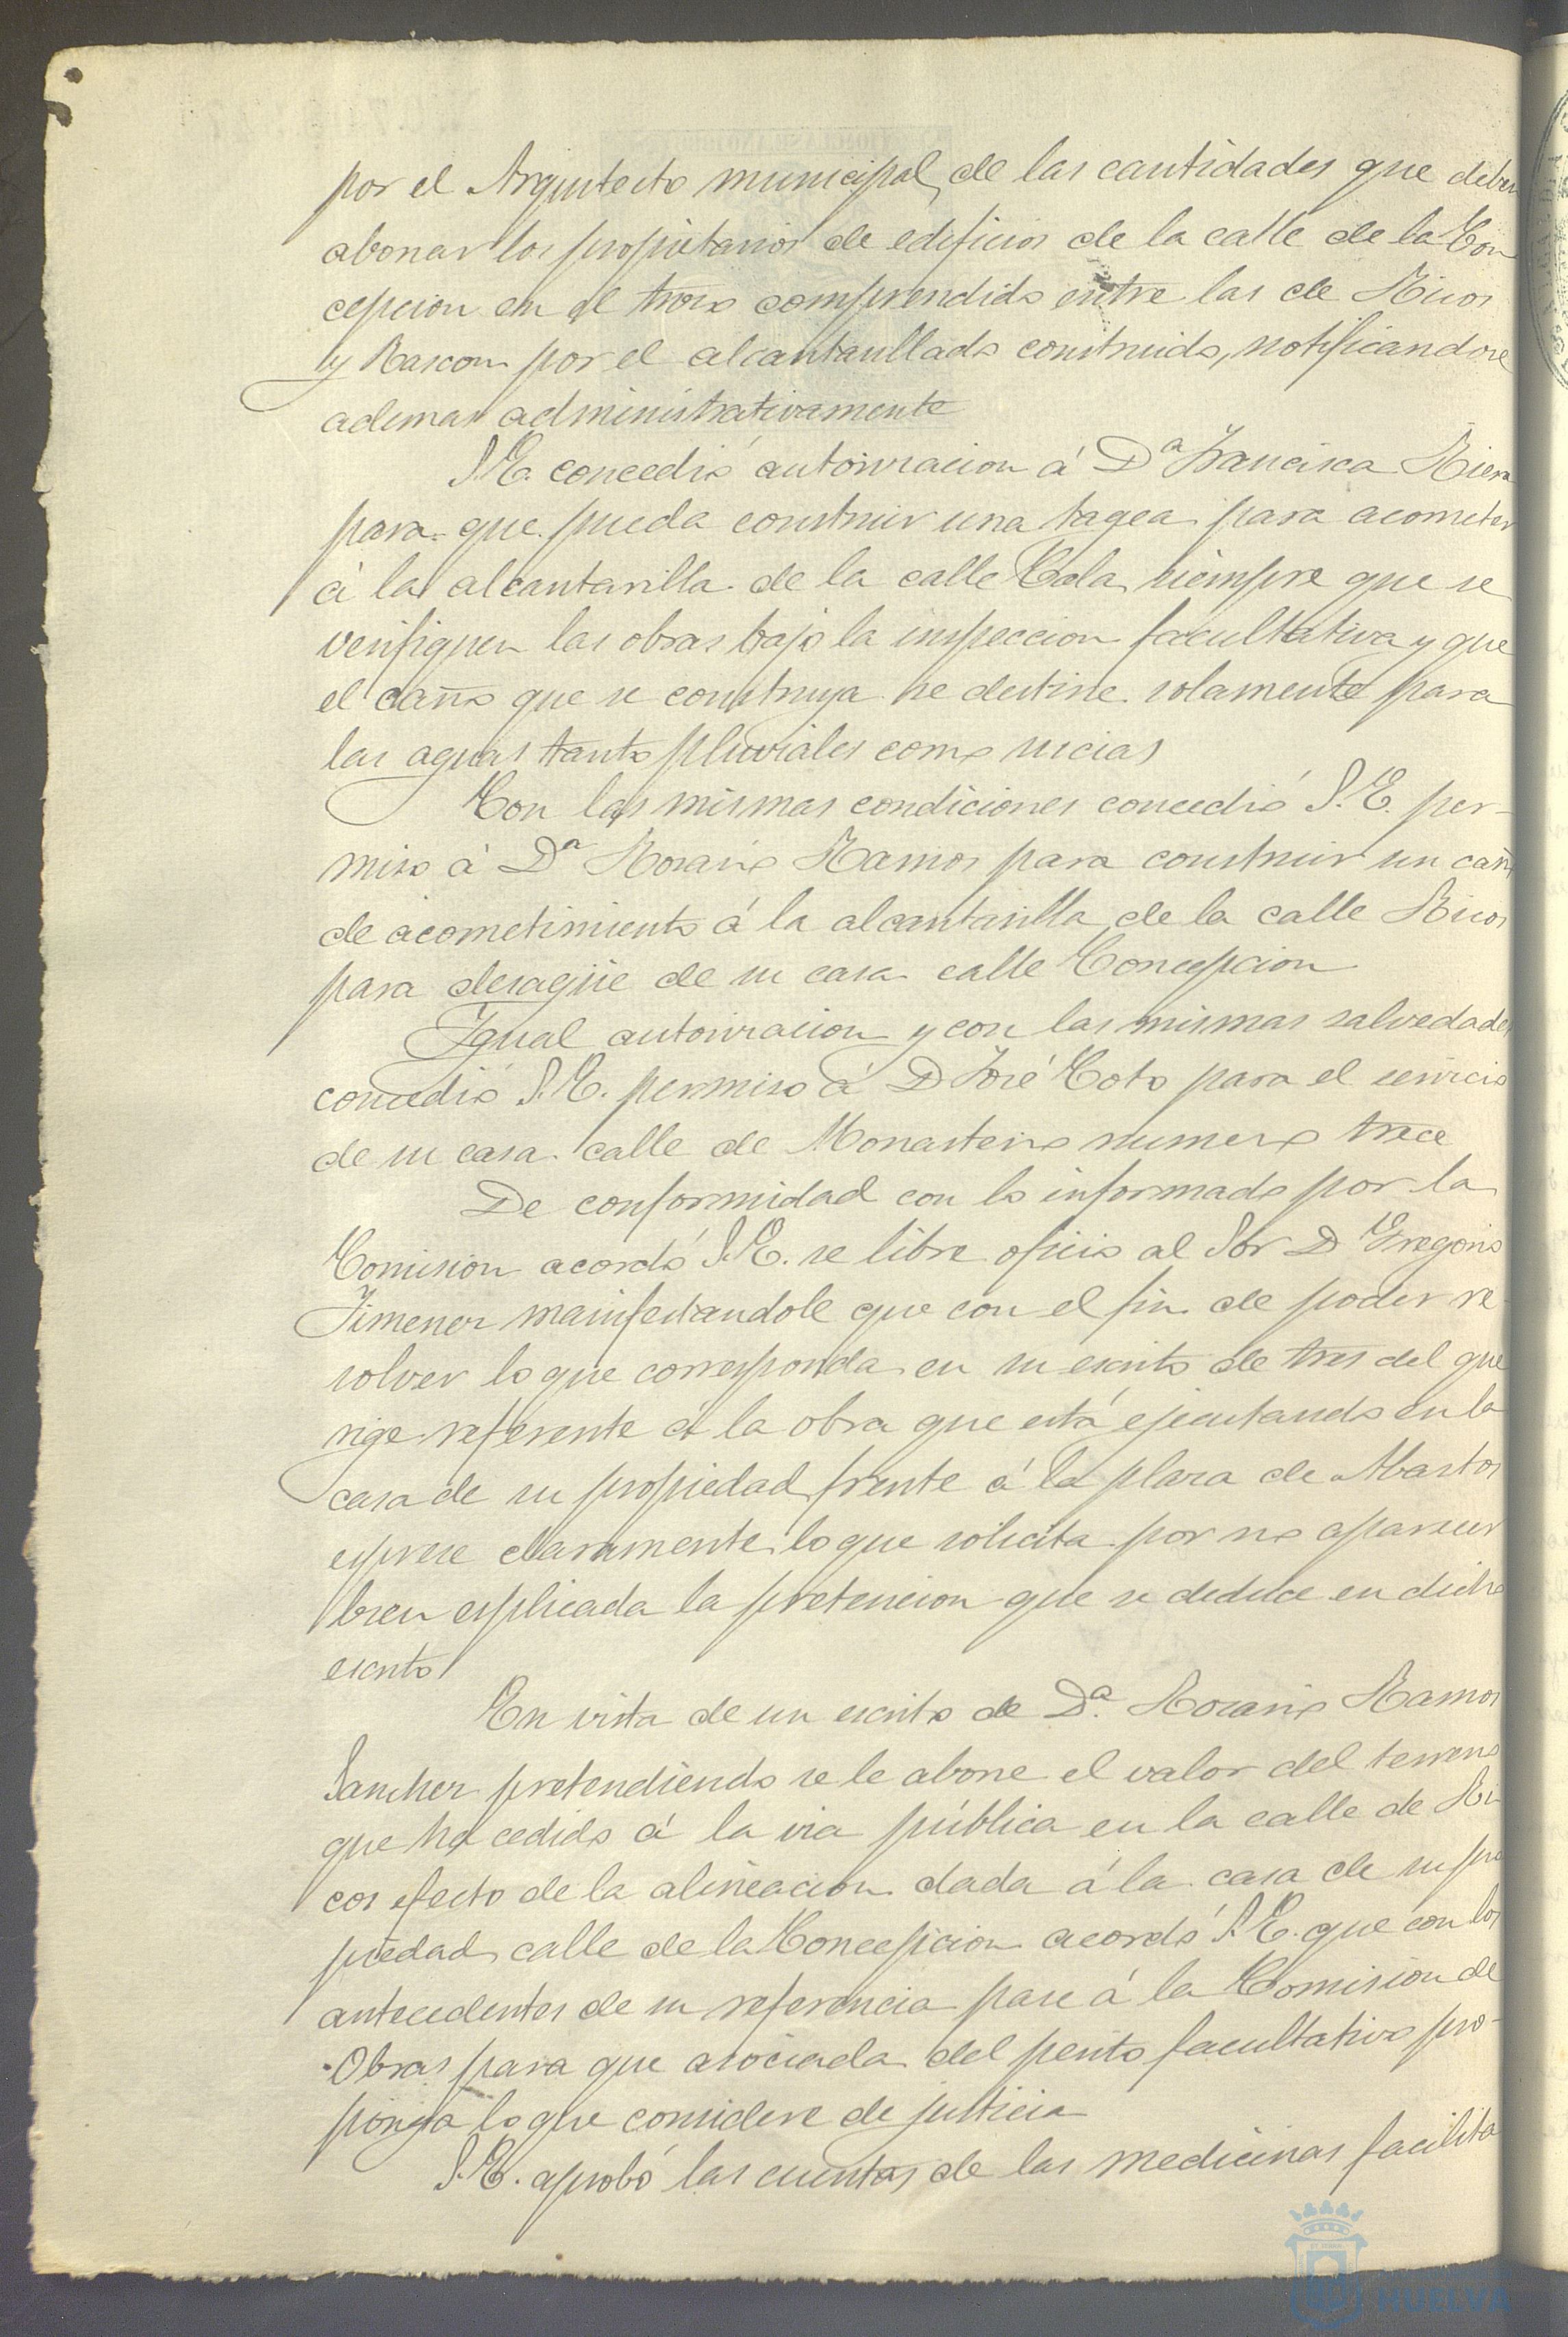 por el Arquitecto municipal, de las cantidades que deben
abonar los propietarios de edificios de la calle de la Con
cepcion en el trozo comprendido entre las de Ricos
y Rascon por el alcantarillado construido, notificandose
ademas administrativamente
S.E. concedió autorizacion á Dª Francisca Riera
para que pueda construir una tagea para acometer
á la alcantarilla de la calle Cala siempre que se
verifiquen las obras bajo la inspeccion facultativa y que
el caño que se construya se destine solamente para
las aguas tanto pluviales como sucias
Con las mismas condiciones concedió S.E. per-
miso á Dª Rosario Ramos para construir un caño
de acometimiento á la alcantarilla de la calle Ricos
para desagüe de su casa calle Concepcion
Igual autorizacion y con las mismas salvedades
concedió S.E. permiso á D José Coto para el servicio
de su casa calle de Monasterio numero trece
De conformidad con lo informado por la
Comision acordó S.E. se libre oficio al Sor D Gregorio
Jimenez manifestandole que con el fin de poder re-
solver lo que corresponda en su escrito de tres del que
rige referente á la obra que está ejecutando en la
casa de su propiedad frente á la plaza de Abastos
esprese claramente lo que solicita por no aparecer
bien esplicada la pretencion que se deduce en dicho
escrito
En vista de un escrito de Dª. Rosario Ramos
Sanchez pretendiendo se le abone el valor del terreno
que ha cedido á la via pública en la calle de Ri-
cos efecto de la alineacion dada á la casa de su pro
piedad calle de la Concepcion acordó S.E. que con los
antecedentes de su referencia pase á la Comision de
Obras para que asociada del perito facultativo pro-
ponga lo que considere de justicia
S.E. aprobó las cuentas de las medicinas facilita
HUELVA